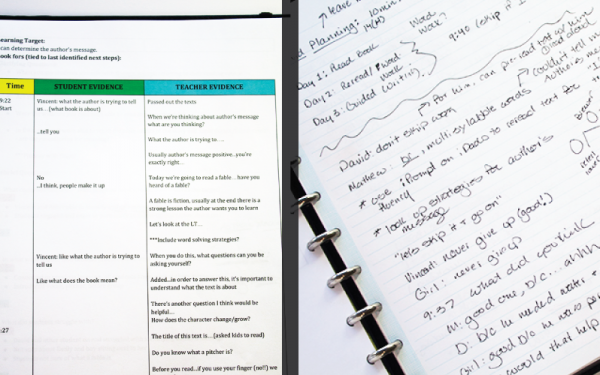 earning Target:
can determine the author's message.
ook fors (tied to last identified next steps):
Time STUDENT EVIDENCE TEACHER EVIDENCE
9:22
Start
Vincent: what the author is trying to tell
us...(what book is about)
...tell you
No
..I think, people make it up
Vincent: like what the author is trying to
tell us
Like what does the book mean?
:27
Passed out the texts
When we're thinking about author's message
what are you thinking?
What the author is trying to ....
Usually author's message positive...you're
exactly right...
Today we're going to read a fable... have you
heard of a fable?
A fable is fiction, usually at the end there is a
strong lesson the author wants you to learn
Let's look at the LT...
***Include word solving strategies?
When you do this, what questions can you be
asking yourself?
Added...in order to answer this, it's important to
understand what the text is about
There's another question I think would be
helpful...
How does the character change/grow?
The title of this text is....(asked kids to read)
Do you know what a pitcher is?
Before you read...if you use your finger (no!!) we
Planning: 10min
Word
Work?
9:40 (skip it
Day 1: Read Book
Day 2: Reread/Word
Work
Day 3: Guided Writing
For him, can pre-read text w/ him
couldn't tell me
David: don't skip words
Matthew: multisyllabic words
* use iPrompt on iPads to reread text for
fluency
* look up strategies for author's
message
"lets skip it & go on"
Vincent: never give up (good!)
Girl: never give up
9:37 what did you think
M: good one, b/c... ahhh
D: b/c he needed water &
Girl: good b/c he
would that help